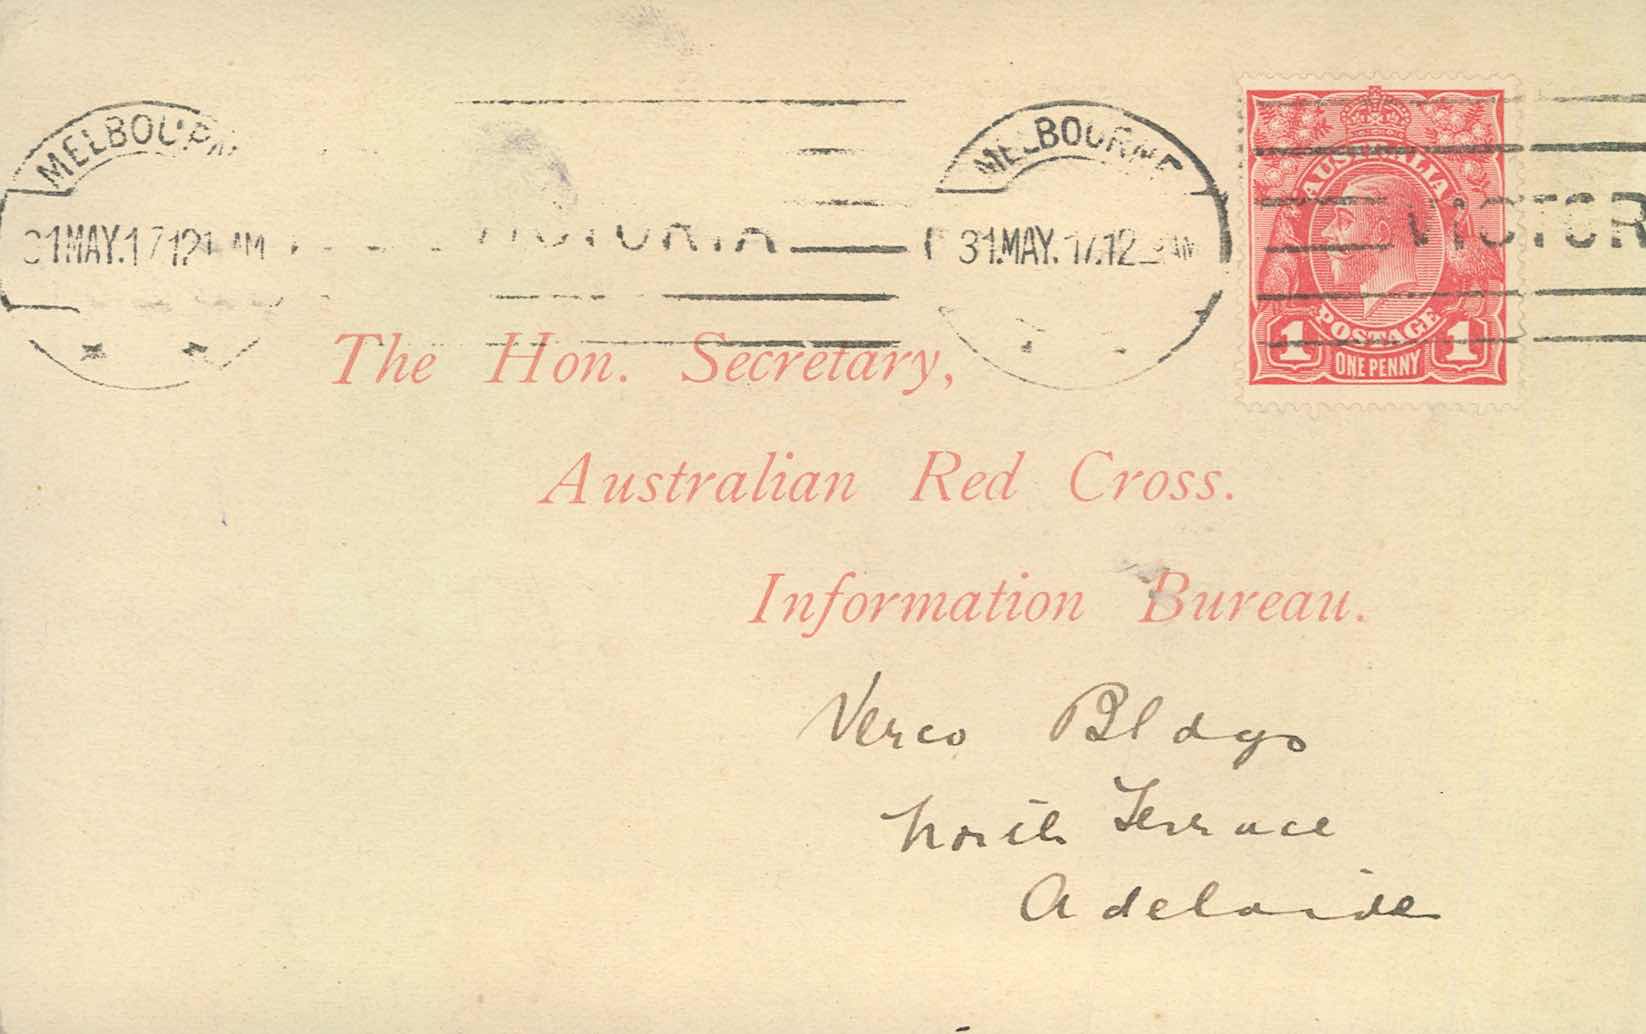 MELBOURNE
31 MAY. 17 12 AM
VICTORIA
MELBOURNE
31 MAY. 17. 12 AM
VICTOR
AUSTRALIA
POSTAGE
1 ONE PENNY 1
The Hon. Secretary,
Australian Red Cross.
Information Bureau.
Verco Bldgs
North Terrace
Adelaide